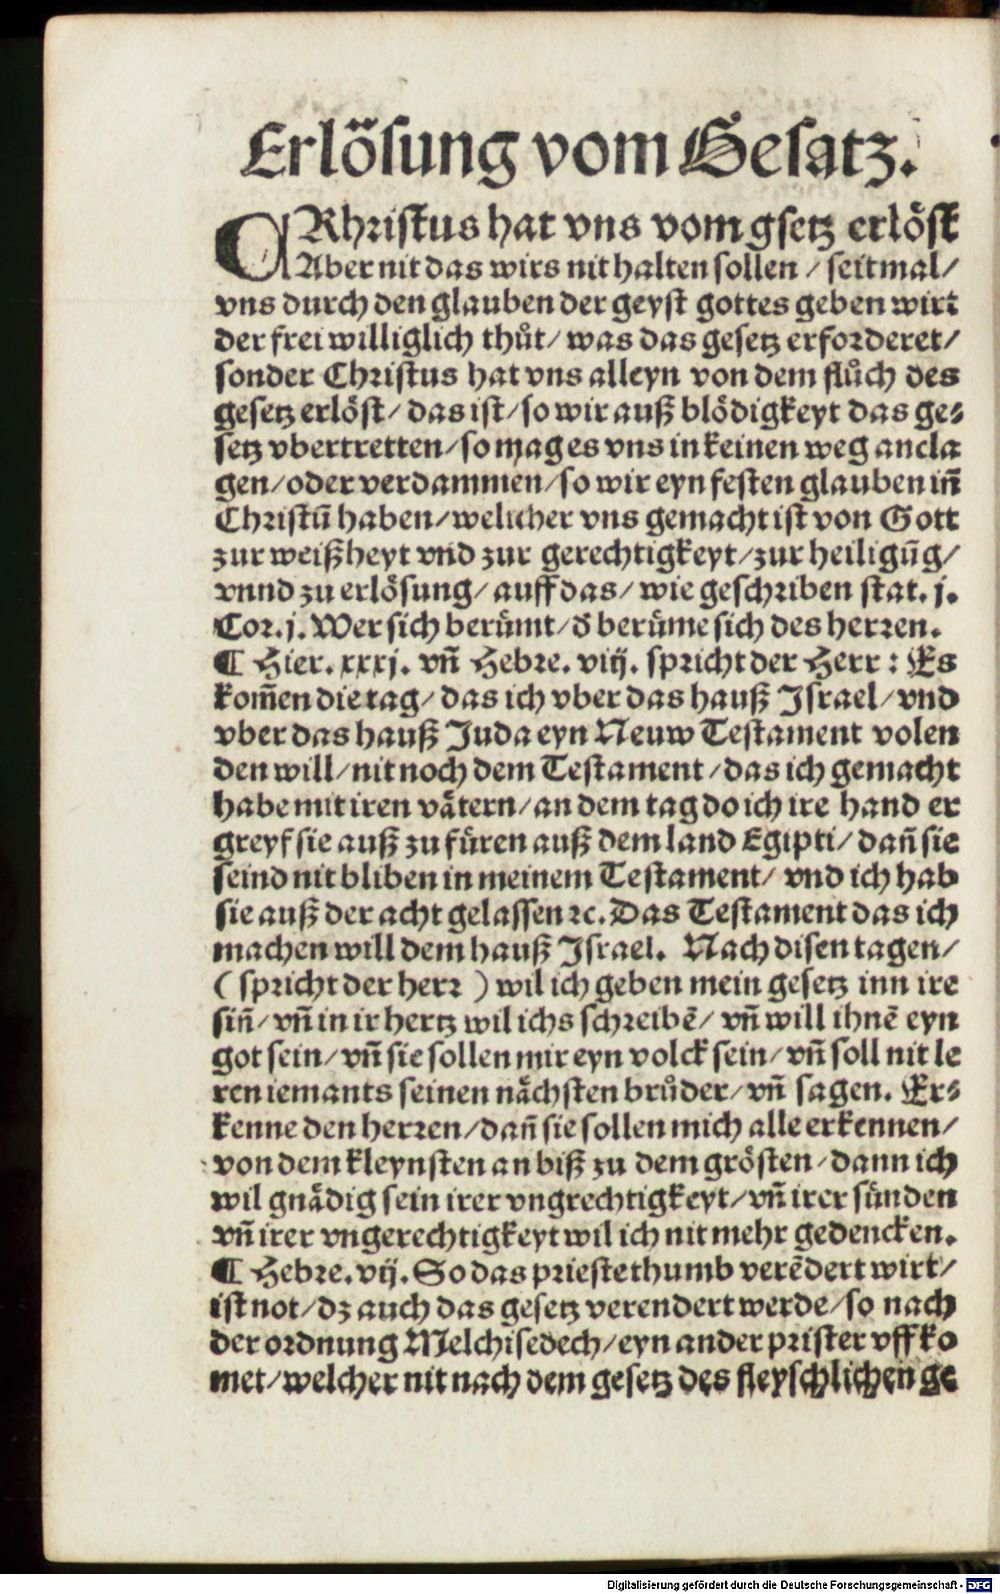 Erlösung vom Gesatz.
CRhristus hat vns vom gsetz erlöst
Aber nit das wirs nit halten sollen / seitmal/
vns durch den glauben der geyst gottes geben wirt
der frei williglich thůt/ was das gesetz erforderet/
sonder Christus hat vns alleyn von dem flůch des
gesetz erlöst/ das ist/ so wir auß blödigkeyt das ge⸗
setz vbertretten/ so mag es vns in keinen weg ancla
gen/ oder verdammen/ so wir eyn festen glauben in̄
Christū haben/ welicher vns gemacht ist von Gott
zur weißheyt vnd zur gerechtigkeyt/ zur heiligūg/
vnnd zu erlösung/ auff das/ wie geschriben stat. j.
Cor. j. Wer sich berümt/ d̄ berüme sich des herren.
¶ Hier. xxxj. vn̄ Hebre. viij. spricht der Herr : Es
kom̄en die tag/ das ich vber das hauß Israel/ vnd
vber das hauß Juda eyn Neuw Testament volen
den will/ nit noch dem Testament/ das ich gemacht
habe mit iren vätern/ an dem tag do ich ire hand er
greyf sie auß zu füren auß dem land Egipti/ dan̄ sie
seind nit bliben in meinem Testament/ vnd ich hab
sie auß der acht gelassen ꝛc. Das Testament das ich
machen will dem hauß Israel. Nach disen tagen/
( spricht der herr ) wil ich geben mein gesetz inn ire
sin̄/ vn̄ in ir hertz wil ichs schreibē/ vn̄ will ihnē eyn
got sein/ vn̄ sie sollen mir eyn volck sein/ vn̄ soll nit le
ren iemants seinen nächsten brůder/ vn̄ sagen. Er⸗
kenne den herren/ dan̄ sie sollen mich alle erkennen/
von dem kleynsten an biß zu dem grösten/ dann ich
wil gnädig sein irer vngrechtigkeyt/ vn̄ irer sünden
vn̄ irer vngerechtigkeyt wil ich nit mehr gedencken.
¶ Hebre. vij. So das priestethumb verēdert wirt/
ist not/ dz auch das gesetz verendert werde/ so nach
der ordnung Melchisedech/ eyn ander prister vff ko
met/ welcher nit nach dem gesetz des fleyschlichen ge
Digitalisierung gefördert durch die Deutsche Forschungsgemeinschaft - DFG